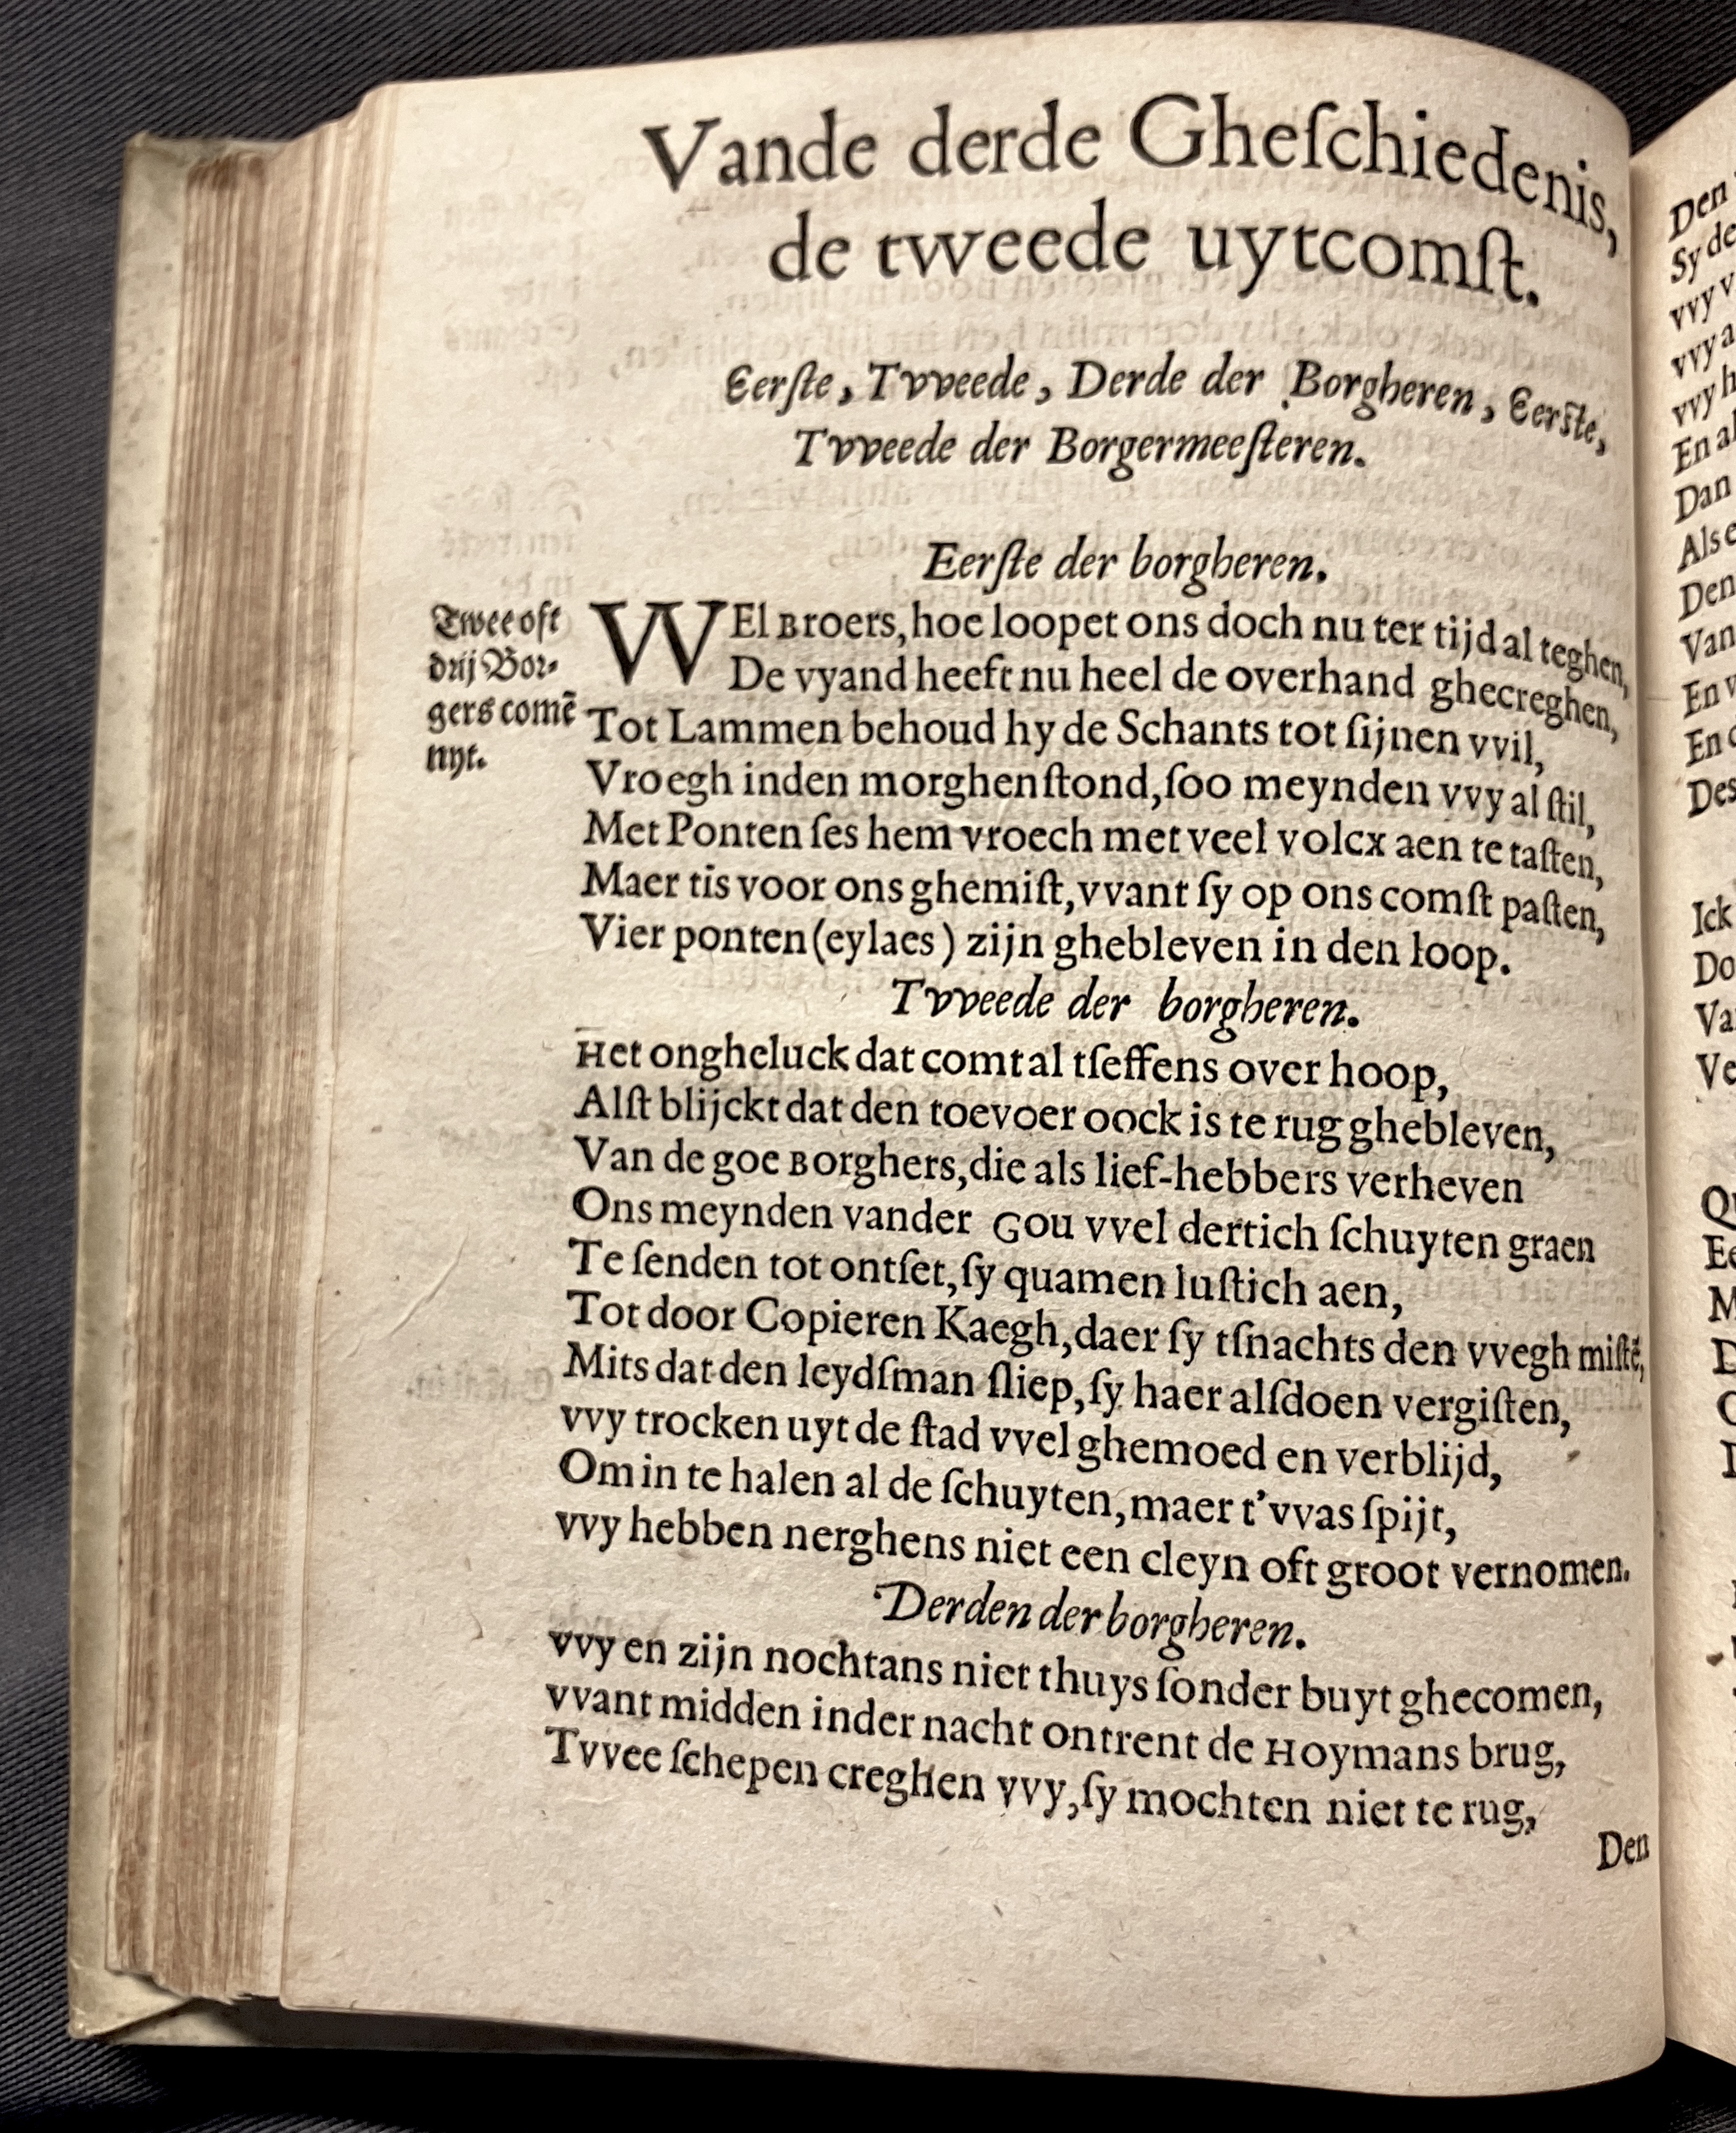 Vande derde Gheſchiedenis,
de tweede uytcomſt.
Eerſte, Tvveede, Derde der Borgheren, Eerſte,
Tvveede der Borgermeeſteren.
Eerſte der borgheren.
Twee oft
drij Bor-
gers comẽ
uyt.
WEl Broers, hoe loopet ons doch nu ter tijd al teghen,
De vyand heeft nu heel de overhand ghecreghen,
Tot Lammen behoud hy de Schants tot ſijnen vvil,
Vroegh inden morghenſtond, ſoo meynden vvy al ſtil,
Met Ponten ſes hem vroech met veel volcx aen te taſten,
Maer tis voor ons ghemiſt, vvant ſy op ons comſt paſten,
Vier ponten (eylaes) zijn ghebleven in den loop.
Tvveede der borgheren.
Het ongheluck dat comt al tſeffens over hoop,
Alſt blijckt dat den toevoer oock is te rug ghebleven,
Van de goe Borghers, die als lief-hebbers verheven
Ons meynden vander Gou vvel dertich ſchuyten graen
Te ſenden tot ontſet, ſy quamen luſtich aen,
Tot door Copieren Kaegh, daer ſy tſnachts den vvegh miſtẽ,
Mits dat den leydſman ſliep, ſy haer alſdoen vergiſten,
vvy trocken uyt de ſtad vvel ghemoed en verblijd,
Om in te halen al de ſchuyten, maer t'vvas ſpijt,
vvy hebben nerghens niet een cleyn oft groot vernomen.
Derden der borgheren.
vvy en zijn nochtans niet thuys ſonder buyt ghecomen,
vvant midden inder nacht ontrent de Hoymans brug,
Tvvee ſchepen creghen vvy, ſy mochten niet te rug,
Den
Den
Sy de
vvy v
vvy a
vvy h
En al
Dan
Als e
Den
Van
En v
En
Des
Ick
Do
Va
Ve